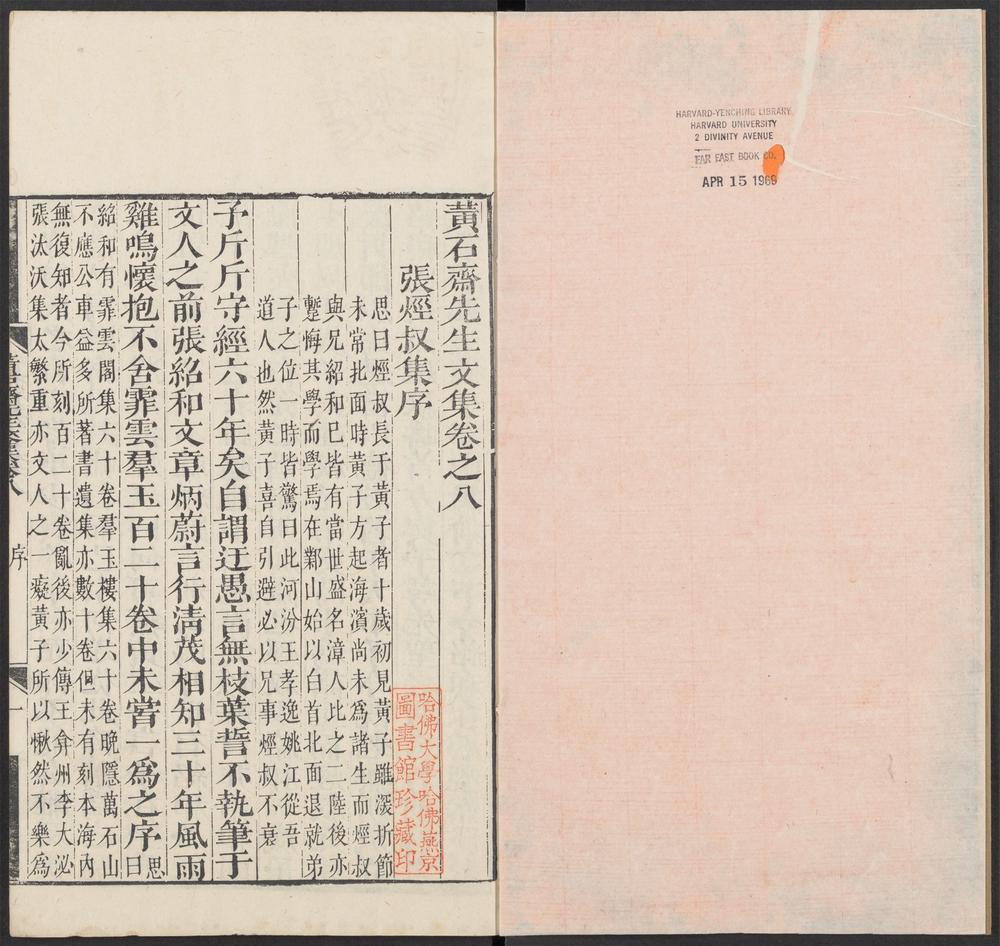 HARVARD-YENCHING LIBRARY
HARVARD UNIVERSITY
2 DIVINITY AVENUE
FAR EAST BOOK CO.
APR 15 1969
黃石齋先生文集卷之八
張烴叔集序
思曰烴叔長于黃子者十歲初見黃子雖深折節
未常北面時黃子方起海濱尚未為諸生而烴叔
與兄紹和已皆有當世盛名漳人比之二陸後亦
蹔悔其學而學焉在鄴山始以白首北面退就弟
子之位一時皆驚曰此河汾王孝逸姚江從吾
道人也然黃子喜自引避必以兄事烴叔不衰
予斤斤守經六十年矣自謂迂愚言無枝葉誓不執筆于
文人之前張紹和文章炳蔚言行淸茂相知三十年風雨
雞鳴懷抱不舍霏雲羣玉百二十卷中未嘗一為之序思曰
紹和有霏雲閣集六十卷羣玉樓集六十卷晚隱萬石山
不應公車益多所著書遺集亦數十卷但未有刻本海內
無復知者今所刻百二十卷亂後亦少傳王弇州李大泌
張汰沃集太繁重亦文人之一癡黃子所以愀然不樂為
序
一
哈佛大學哈佛燕京
圖書館珍藏印